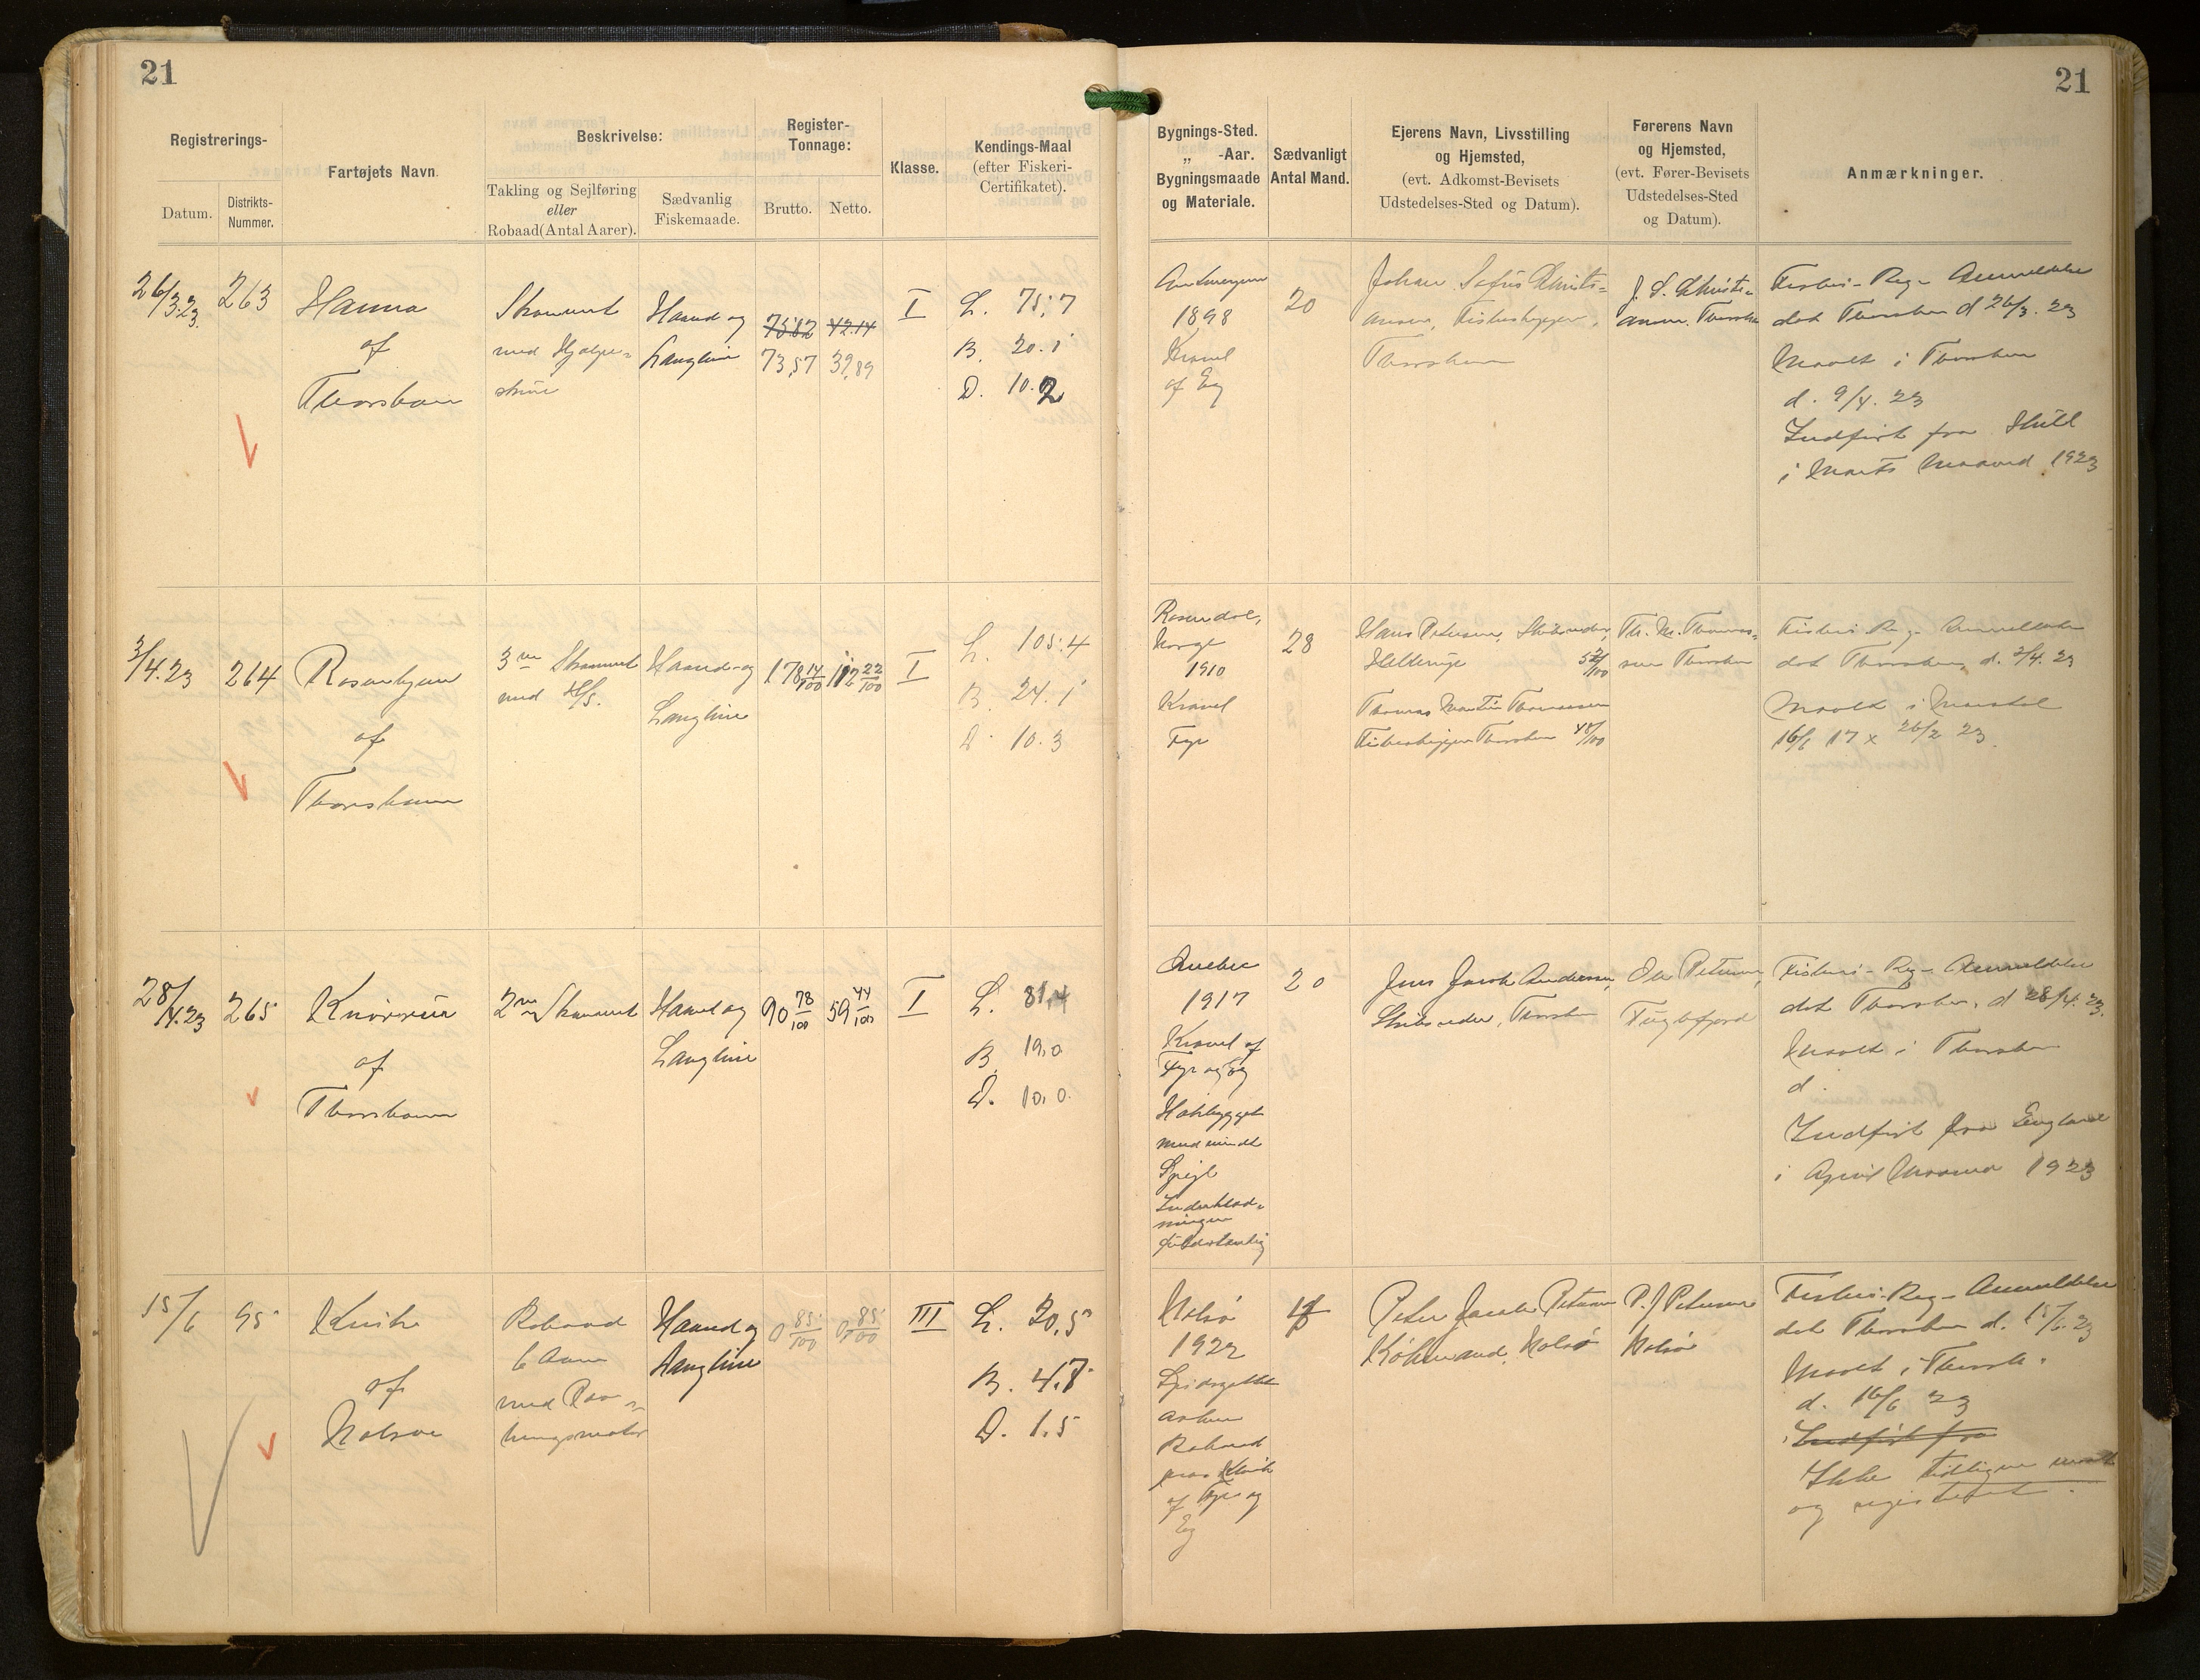 21
21
Registrerings-
Datum.
Distrikts-
Nummer.
Fartøjets Navn.
Beskrivelse:
Takling og Sejlføring
eller
Robaad(Antal Aarer).
Sædvanlig
Fiskemaade.
Register-
Tonnage:
Brutto.
Netto.
Klasse.
Kendings-Maal
(efter Fiskeri-
Certifikatet).
Bygnings-Sted.
„ -Aar.
Bygningsmaade
og Materiale.
Sædvanligt
Antal Mand.
Ejerens Navn, Livsstilling
og Hjemsted,
(evt. Adkomst-Bevisets
Udstedelses-Sted og Datum).
Førerens Navn
og Hjemsted,
(evt. Fører-Bevisets
Udstedelses-Sted
og Datum).
Anmærkninger.
26/3.23.
263
Hanna
af
Thorshavn
Skonnert
med Hjælpe-
skrue
Haand og
Langline
75.82 42.14
73,57 39,89
I
L. 75,7
B. 20.1
D. 10.2
1898
Kravel
af Eg
20
Johan Sofus Christi-
ansen, Fiskeskipper,
Thorshavn
J. S. Christi-
ansen. Thorshavn
Fiskeri-Reg-Anmeldelse
dat Thorshavn d 26/3. 23
Maalt i Thorshavn
d. 9/4. 23
Indført fra Hull
i Marts Maaned 1923
3/4.23
264
Rosenhjem
af
Thorshavn
3 m Skonnert
med H/S.
Haand-og
Langline
178 14/100
112 22/100
I
L. 105.4
B. 24.1
D. 10.3
Rosendal,
Norge
1910
Kravel
Fyr
28
Hans Petersen, Skibsreder,
52/100
Thomas Martin Thomassen
Fiskeskipper Thorshavn 48/100
Th. M. Thomas-
sen Thorshavn
Fiskeri-Reg- Anmeldelse
dat Thorshavn, d. 3/4. 23
Maalt i Marstal
16/6 17 x 26/2 23.
28/4.23
265
af
Thorshavn
2 m Skonnert
Haand og
Langline
90 78/100
59 44/100
I
L. 81,4
B. 19,0
D. 10,0.
Quebec
1917
Kravel af
Fyr og Eg
med rundt
Spejl
20
Jens Jacob Andersen,
Skibsreder, Thorshavn
Ole Petersen,
Fuglefjord
Fiskeri-Reg-Anmeldelse
dat Thorshavn, d 28/4. 23.
Maalt i Thorshavn
d.
Indført fra England
i April Maaned 1923
15/6
95
af
Nolsø
Robaad
6 Aarer
med Paa-
hængsmotor
Haand og
Langline
0 85/100
0 85/100
III
L. 20,5
B. 4.7
D. 1.5
Nolsø
1922
Spidsgattet
aaben
Robaad
paa Klink
af Fyr og
Eg
Peter Jacob Petersen
Købmand, Nolsø
P. J Petersen
Nolsø
Fiskeri-Reg-Anmeldelse
dat Thorshavn d. 15/6. 23
Maalt i Thorsh.
d. 16/6 23
Indført fra
Ikke tidligere maalt
og registreret.